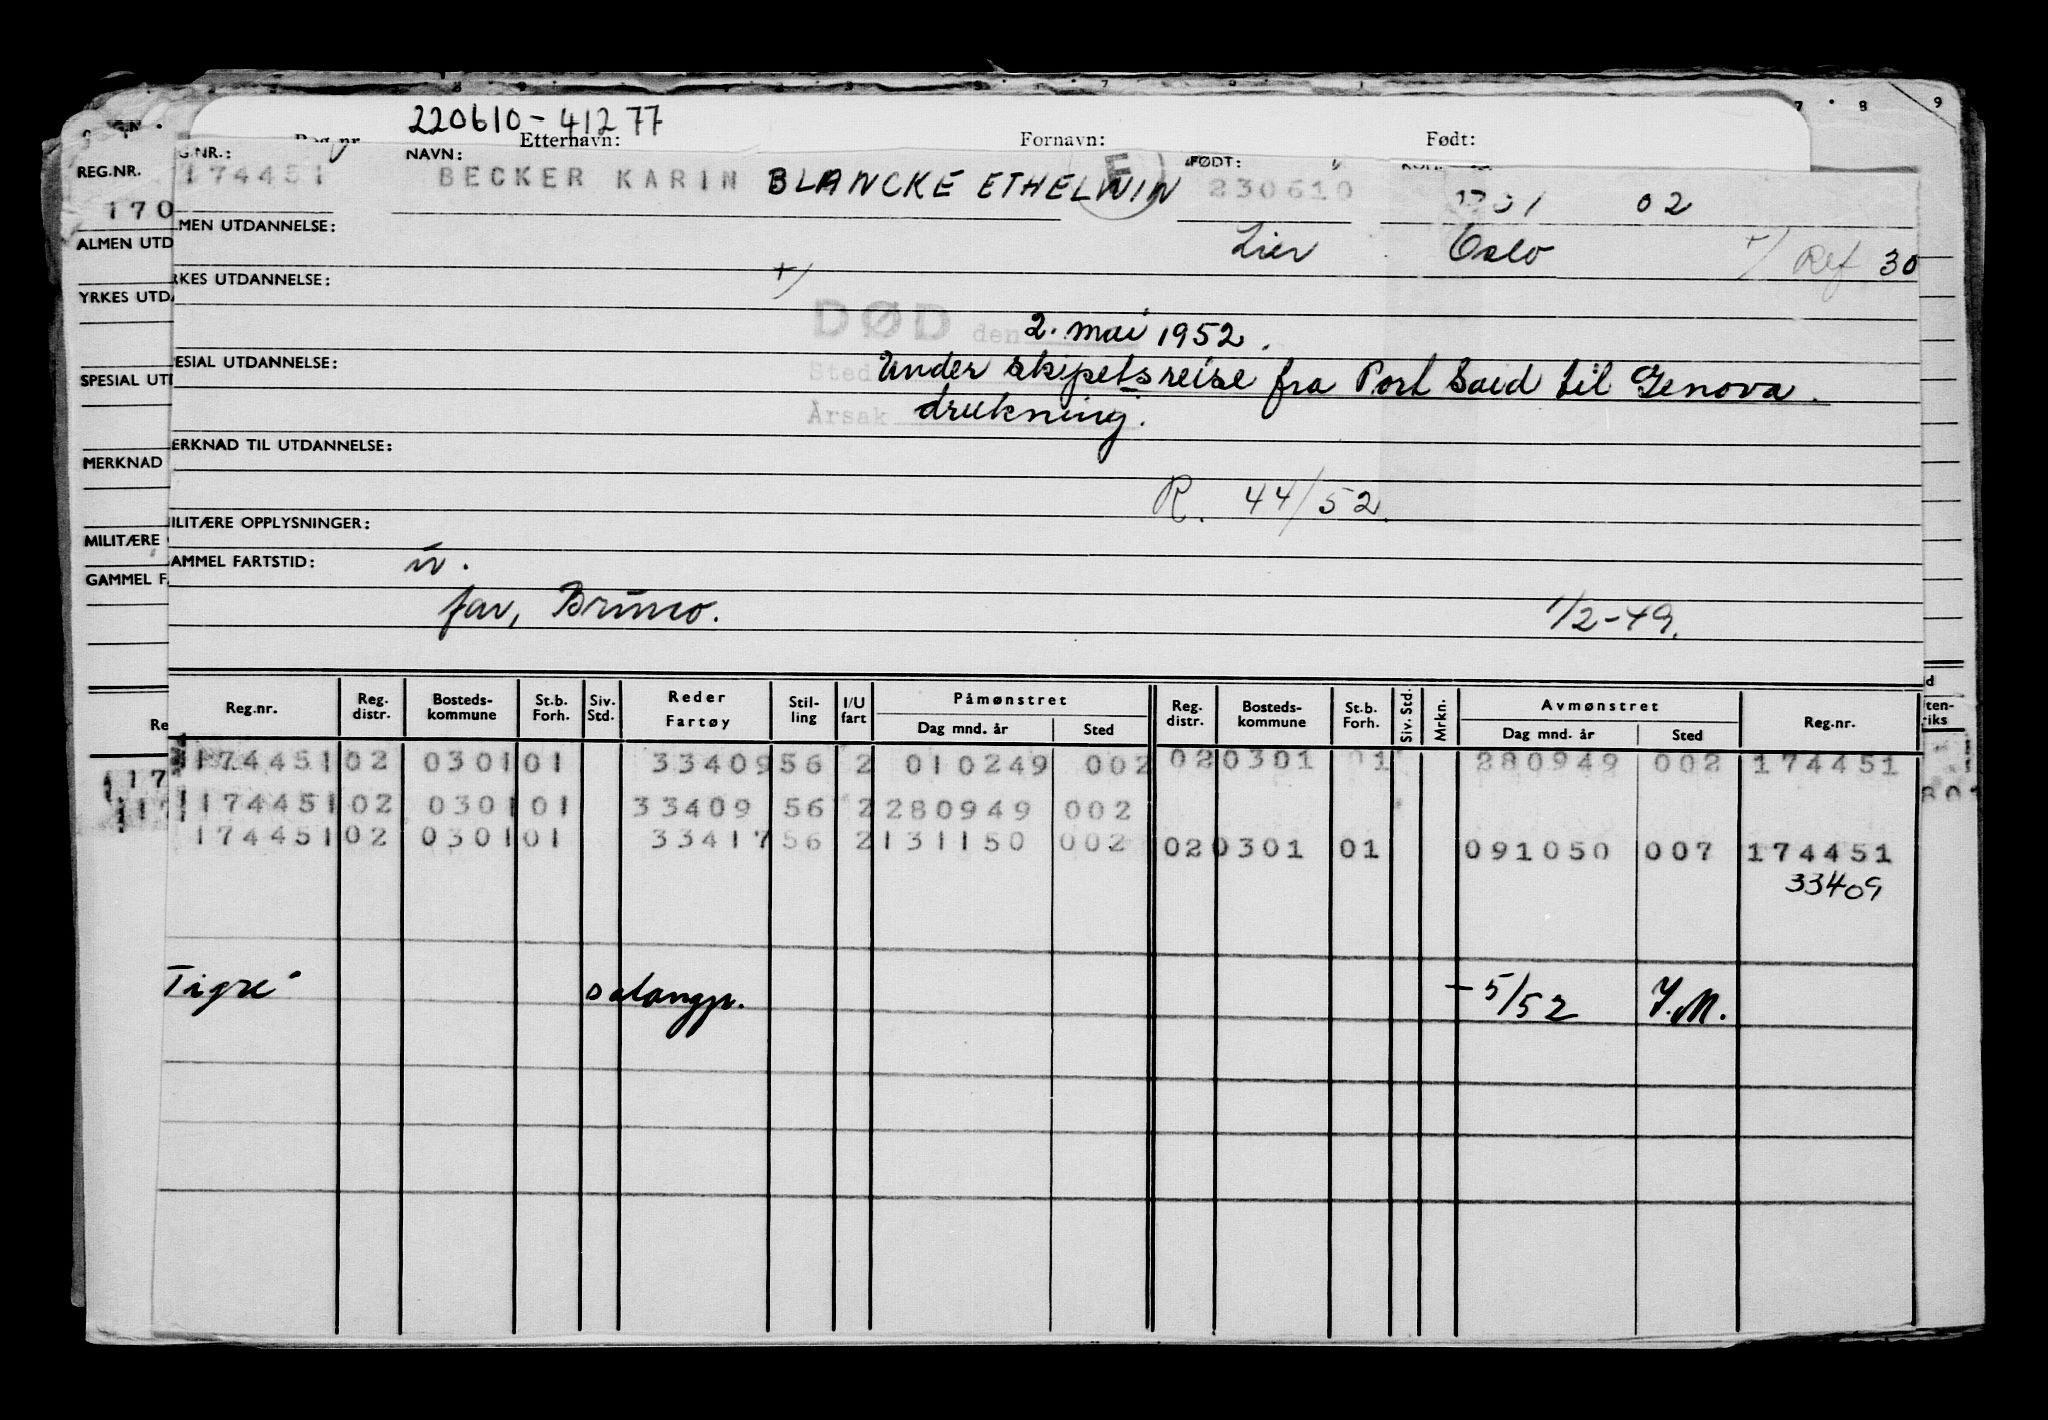 7 8 9
220610-41277
Reg.nr. Etternavn: Fornavn: Født:
REG.NR. G.NR.: NAVN: FØDT:
170 174451 BECKER KARIN BLANCKE ETHELWIN E 230610 02
ALMEN UTD MEN UTDANNELSE: Lier Oslo +/ Ref 30
YRKES UTDA RKES UTDANNELSE: +/
DØD den 2. mai 1952.
SPESIAL UTD ESIAL UTDANNELSE: Sted Under skipets reise fra Port Said til Genova.
Årsak drukning.
MERKNAD ERKNAD TIL UTDANNELSE:
R. 44/52.
MILITÆRE ILITÆRE OPPLYSNINGER:
GAMMEL FA AMMEL FARTSTID: u.
far, Bruno. 1/2-49.
Reg.nr. Reg. distr. Bosteds- kommune St.b. Forh. Siv. Std. Reder Fartøy Stil- ling I/U fart Påmønstret Dag mnd. år Sted Reg. distr. Bosteds- kommune St.b. Forh. Siv. Std. Mrkn. Avmønstret Dag mnd. år Sted Reg.nr.
174451 02 0301 01 33409 56 2 010249 002 02 0301 01 280949 002 174451
174451 02 0301 01 33409 56 2 280949 002
174451 02 0301 01 33417 56 2 131150 002 02 0301 01 091050 007 174451
33409
Tigre salongp. - 5/52 Y.M.